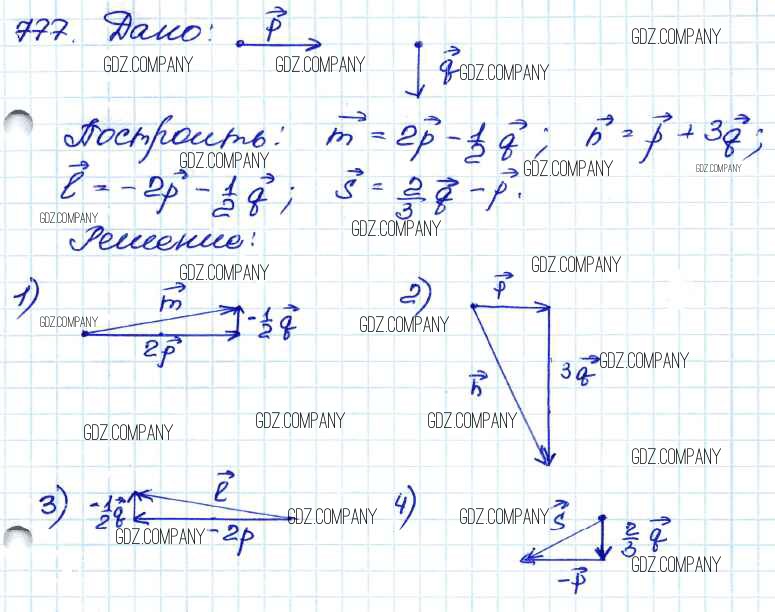 777. Дано: p⃗
q⃗
GDZ.COMPANY GDZ.COMPANY GDZ.COMPANY GDZ.COMPANY
Построить: m⃗ = 2p⃗ - 1/2 q⃗; n⃗ = p⃗ + 3q⃗;
GDZ.COMPANY GDZ.COMPANY GDZ.COMPANY
l⃗ = -2p⃗ - 1/2 q⃗; s⃗ = 2/3 q⃗ - p⃗.
GDZ.COMPANY GDZ.COMPANY
Решение:
GDZ.COMPANY GDZ.COMPANY
1) m⃗ -1/2 q⃗
2p⃗
2) p⃗
n⃗ 3q⃗
GDZ.COMPANY GDZ.COMPANY GDZ.COMPANY
GDZ.COMPANY GDZ.COMPANY GDZ.COMPANY GDZ.COMPANY
3) -1/2 q⃗ l⃗
-2p
4) s⃗ 2/3 q⃗
-p⃗
GDZ.COMPANY GDZ.COMPANY
GDZ.COMPANY GDZ.COMPANY